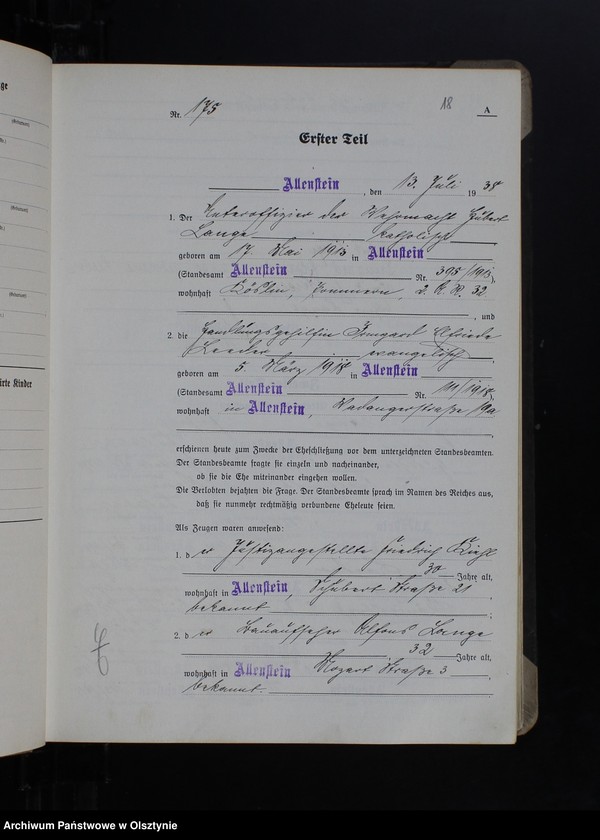 ge
(Geburtsort)
(Geburtsort)
irte Kinder
18
A
Nr. 175
Erster Teil
Allenstein, den 13. Juli 1938
1. Der Unteroffizier der Wehrmacht Hubert
Lange katholisch
geboren am 17. Mai 1913 in Allenstein
(Standesamt Allenstein Nr. 395/1913),
wohnhaft Köslin, Pommern, 2. K. R. 32
, und
2. die Handlungsgehilfin Irmgard Elfriede
Leeder evangelisch,
geboren am 5. März 1918 in Allenstein
(Standesamt Allenstein Nr. 111/1918),
wohnhaft in Allenstein, Wadangerstraße 19a
,
erschienen heute zum Zwecke der Eheschließung vor dem unterzeichneten Standesbeamten.
Der Standesbeamte fragte sie einzeln und nacheinander,
ob sie die Ehe miteinander eingehen wollen.
Die Verlobten bejahten die Frage. Der Standesbeamte sprach im Namen des Reiches aus,
daß sie nunmehr rechtmäßig verbundene Eheleute seien.
Als Zeugen waren anwesend:
1. der Justizangestellte Friedrich Kiehl
30 Jahre alt,
wohnhaft in Allenstein, Schubert Straße 21,
bekannt;
2. der Bauaufseher Alfons Lange
, 32 Jahre alt,
wohnhaft in Allenstein Mozart Straße 3,
bekannt.
Archiwum Państwowe w Olsztynie